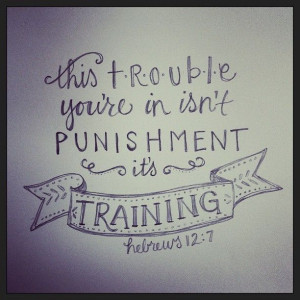 this t·r·o·u·b·l·e
you're in isn't
PUNISHMENT
it's
TRAINING
hebrews 12:7